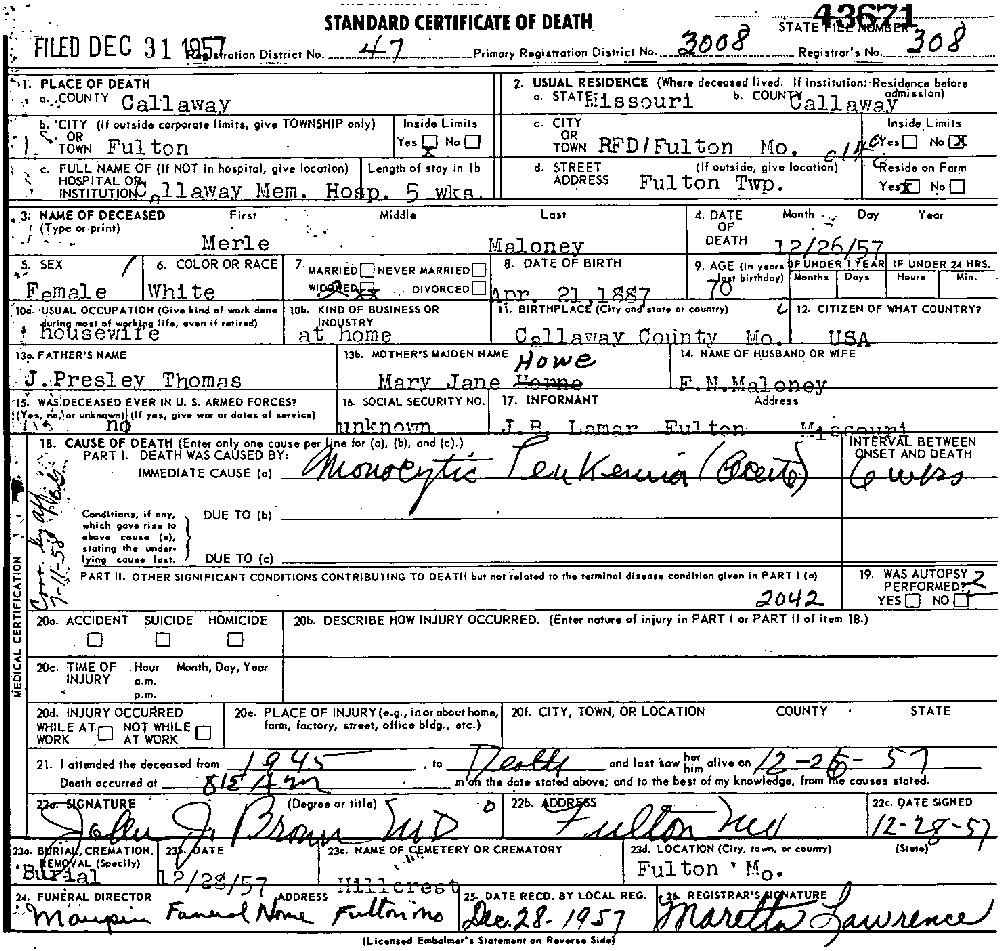 43671
STANDARD CERTIFICATE OF DEATH
STATE FILE NUMBER
FILED DEC 31 1957 Registration District No. 47 Primary Registration District No. 3008 Registrar's No. 308
1. PLACE OF DEATH
a. COUNTY Callaway
2. USUAL RESIDENCE (Where deceased lived. If institution: Residence before admission)
a. STATE Missouri b. COUNTY Callaway
b. CITY (If outside corporate limits, give TOWNSHIP only) OR TOWN Fulton
Inside Limits Yes No
c. CITY OR TOWN RFD1 Fulton Mo.
Inside Limits Yes No X
c. FULL NAME OF (If NOT in hospital, give location) HOSPITAL OR INSTITUTION Callaway Mem. Hosp.
Length of stay in 1b 5 wks.
d. STREET ADDRESS (If outside, give location) Fulton Twp.
Reside on Farm Yes X No
3. NAME OF DECEASED (Type or print) First Middle Last
Merle Maloney
4. DATE OF DEATH Month Day Year
12/26/57
5. SEX
Female
6. COLOR OR RACE
White
7. MARRIED NEVER MARRIED
WIDOWED DIVORCED
8. DATE OF BIRTH
Apr. 21,1887
9. AGE (In years last birthday)
70
IF UNDER 1 YEAR Months Days
IF UNDER 24 HRS. Hours Min.
10a. USUAL OCCUPATION (Give kind of work done during most of working life, even if retired)
housewife
10b. KIND OF BUSINESS OR INDUSTRY
at home
11. BIRTHPLACE (City and state or country)
Callaway County Mo.
12. CITIZEN OF WHAT COUNTRY?
USA
13a. FATHER'S NAME
J.Presley Thomas
13b. MOTHER'S MAIDEN NAME Howe
Mary Jane Horne
14. NAME OF HUSBAND OR WIFE
F.N.Maloney
15. WAS DECEASED EVER IN U. S. ARMED FORCES?
(Yes, no, or unknown) (If yes, give war or dates of service)
no
16. SOCIAL SECURITY NO.
unknown
17. INFORMANT Address
J.B. Lamar Fulton Missouri
18. CAUSE OF DEATH (Enter only one cause per line for (a), (b), and (c).)
PART I. DEATH WAS CAUSED BY:
IMMEDIATE CAUSE (a) Monocytic Leukemia (Acute)
INTERVAL BETWEEN ONSET AND DEATH
6 wks
Conditions, if any, which gave rise to above cause (a), stating the underlying cause last.
DUE TO (b)
DUE TO (c)
7-11-58
MEDICAL CERTIFICATION
PART II. OTHER SIGNIFICANT CONDITIONS CONTRIBUTING TO DEATH but not related to the terminal disease condition given in PART I (a)
2042
19. WAS AUTOPSY PERFORMED? 2
YES NO
20a. ACCIDENT SUICIDE HOMICIDE
20b. DESCRIBE HOW INJURY OCCURRED. (Enter nature of injury in PART I or PART II of item 18.)
20c. TIME OF INJURY Hour a.m. p.m. Month, Day, Year
20d. INJURY OCCURRED
WHILE AT WORK NOT WHILE AT WORK
20e. PLACE OF INJURY (e.g., in or about home, farm, factory, street, office bldg., etc.)
20f. CITY, TOWN, OR LOCATION COUNTY STATE
21. I attended the deceased from 1945, to Death and last saw her him alive on 12-26-57
Death occurred at 815 A m m on the date stated above; and to the best of my knowledge, from the causes stated.
22a. SIGNATURE (Degree or title)
John J Brown MD
22b. ADDRESS
Fulton Mo
22c. DATE SIGNED
12-28-57
23a. BURIAL, CREMATION, REMOVAL (Specify)
Burial
23b. DATE
12/28/57
23c. NAME OF CEMETERY OR CREMATORY
Hillcrest
23d. LOCATION (City, town, or county) (State)
Fulton Mo.
24. FUNERAL DIRECTOR ADDRESS
Maupin Funeral Home Fulton Mo
25. DATE RECD. BY LOCAL REG.
Dec. 28-1957
26. REGISTRAR'S SIGNATURE
Maretta Lawrence
(Licensed Embalmer's Statement on Reverse Side)